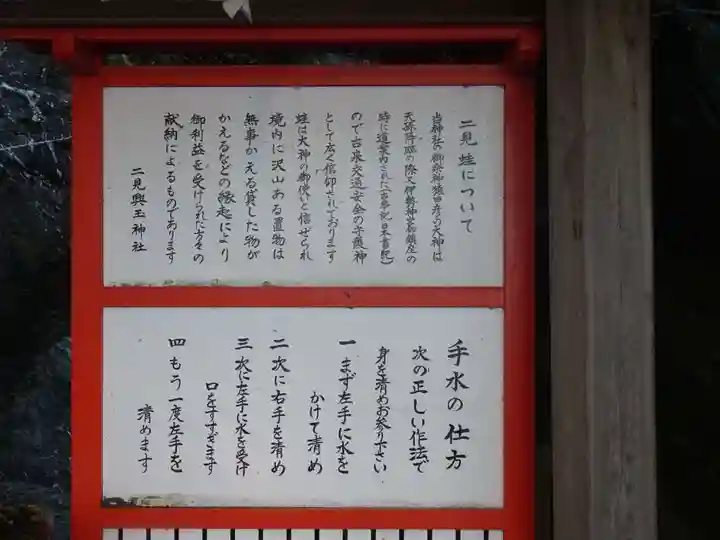 二見蛙について
当神社の御祭神猿田彦の大神は
天孫降臨の際又伊勢神宮御鎮座の
時に道案内された(古事記日本書記)
ので古来交通安全の守護神
として広く信仰されております
蛙は大神の御使いと信ぜられ
境内に沢山ある置物は
無事かえる貸した物が
かえるなどの縁起により
御利益を受けられた方々の
献納によるものであります
二見興玉神社
手水の仕方
次の正しい作法で
身を清めお参り下さい
一 まず左手に水を
かけて清め
二 次に右手を清め
三 次に左手に水を受け
口をすすぎます
四 もう一度左手を
清めます